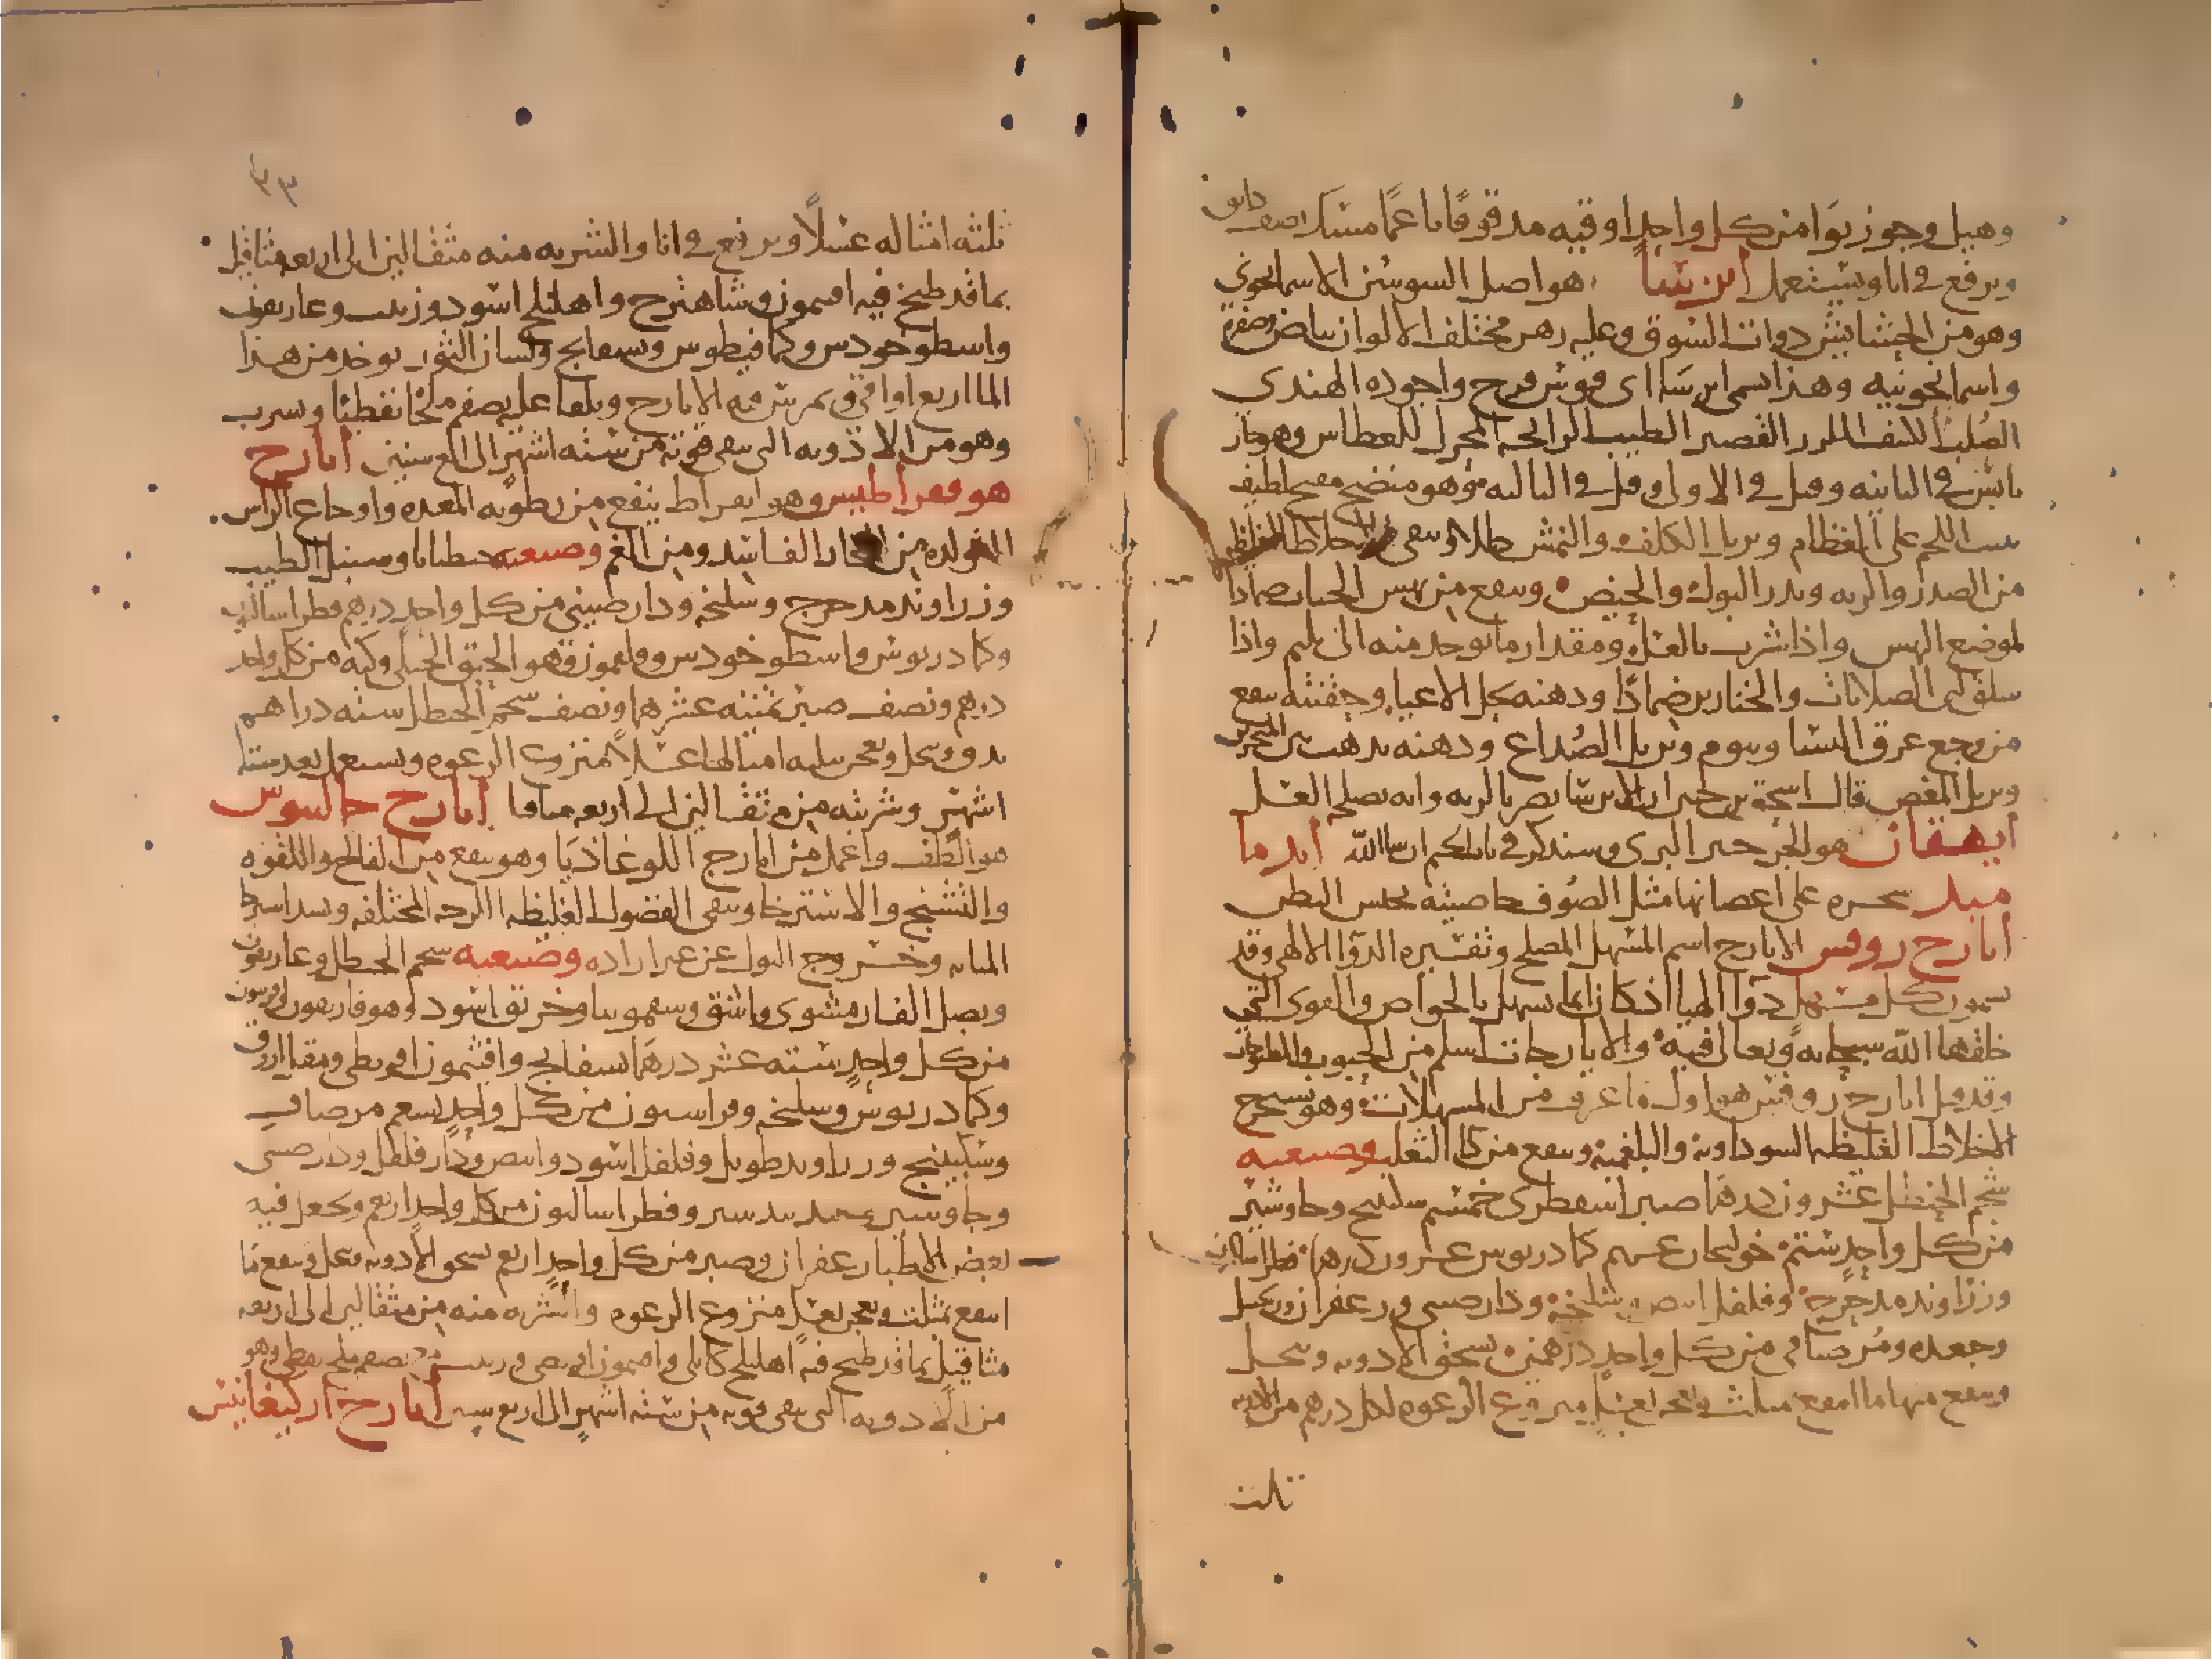 وهيل وجوز بوا من كل واحدا وقيه مدقوقا ناعما مسك نصف دانق
ويرفع في انا ويستعمل ايرسا هو اصل السوسن الاسمانجوني
وهو من الحشايش ذوات السوق وعليه زهر مختلف الالوان بياض وصفره
واسمانجونيه وهذا سمي ايرسا اي قوس قزح واجوده الهندي
الصلب الكثيف الملزز القصير الطيب الرايحه المحرك للعطاس وهو حار
يابس في الثانيه وقيل في الاولى وقيل في الثالثه وهو منضج مفتح لطيف
ينبت اللحم على العظام ويزيل الكلف والنمش طلاء وينقي الاخلاط الغليظه
من الصدر والريه ويدر البول والحيض وينفع من نهش الحيات ضمادا
لموضع النهش واذا شرب بالعسل ومقدار ما يوخذ منه الى واذا
سلق لين الصلابات والخنازير ضمادا ودهنه يحل الاعيا وحقنته ينفع
من وجع عرق النسا وينوم ويزيل الصداع ودهنه يذهب نتن المنخرين
ويزيل المغص قال اسحق بن حنين ان الايرسا يضر بالريه وانه يصلحه العسل
ايهقان هو الجرجير البري وسنذكره في باب الجيم ان شا الله ايدما
ميد شجره على اغصانها مثل الصوف خاصيته يحبس البطن
ايارج روفس الايارج اسم المسهل المصلح وتفسيره الدوا الالهي وقد
يسمون كل مسهل دوا الهيا اذ كان انما يسهل بالخواص والقوى التي
خلقها الله سبحانه وتعالى فيه والايارجات اسلم من الحبوب والمطبوخات
وقد قيل ايارج روفس هو اول ما عرف من المسهلات وهو يستخرج
الاخلاط الغليظه السوداويه والبلغميه وينفع من دا الثعلب وصنعته
شحم الحنظل عشرون درهما صبر اسقطري خمسه سكبينج وجاوشير
من كل واحد سته خولنجان كمادريوس عشرون درهما فطراساليون
وزراوند مدحرج وفلفل ابيض وسليخه ودارصيني وزعفران وزنجبيل
وجعده ومر صافي من كل واحد درهمين تسحق الادويه وتنخل
وينقع منها ما انتقع بمثلث ويعجن بعسل منزوع الرغوه لكل درهم من الادويه
ثلث
٣٣
ثلثه امثاله عسلا ويرفع في انا والشربه منه مثقالين الى اربعه مثاقيل
بما قد طبخ فيه افتيمون وشاهترج واهليلج اسود وزبيب وغاريقون
واسطوخودس وكمافيطوس وبسفايج ولسان الثور يوخذ من هذا
الما اربع اواقي ويمرس فيه الايارج ويلقا عليه نصف ملحا نفطيا ويشرب
وهو من الادويه التي يبقى قوته من سته اشهر الى اربع سنين ايارج
هوفقراطيس وهو ابقراط ينفع من رطوبه المعده واوجاع الراس
المتولده من البخار الفاسد ومن الغم وصنعته جنطيانا وسنبل الطيب
وزراوند مدحرج وسليخه ودارصيني من كل واحد درهم فطراساليون
وكمادريوس واسطوخودس وهو الحبق الجبلي وكيه من كل واحد
درهم ونصف صبر ثمنيه عشر درهما ونصف شحم الحنظل سته دراهم
يدق وينخل ويعجن بثلثه امثالها عسلا منزوع الرغوه ويستعمل بعد سته
اشهر وشربته من مثقالين الى اربعه مثاقيل ايارج جالينوس
هو الطف واعمل من ايارج اللوغاذيا وهو ينفع من الفالج واللقوه
والتشنج والاسترخا وينقي الفضول الغليظه اللزجه المختلفه ويشد استرخا
المثانه وخروج البول عن غير اراده وصنعته شحم الحنظل وغاريقون
وبصل الفار مشوي واشق وسقمونيا وخربق اسود وهوفاريقون وافربيون
من كل واحد سته عشر درهما بسفايج وافتيمون اقريطي ومقل ازرق
وكمادريوس وسليخه وفراسيون من كل واحد تسعه مر صافي
وسكبينج وزراوند طويل وفلفل اسود وابيض ودارفلفل ودارصيني
وجاوشير جندبيدستر وفطراساليون من كل واحد اربع ويجعل فيه
بعض الاطبا زعفران وصبر من كل واحد اربع تسحق الادويه وتنخل وينقع ما
انتقع بمثلث ويعجن بعسل منزوع الرغوه والشربه منه من مثقالين الى اربعه
مثاقيل بما قد طبخ فيه اهليلج كابلي وافتيمون وزبيب مع نصف ملح نفطي وهو
من الادويه التي يبقى قوته من سته اشهر الى اربع سنين ايارج اركيغانيس